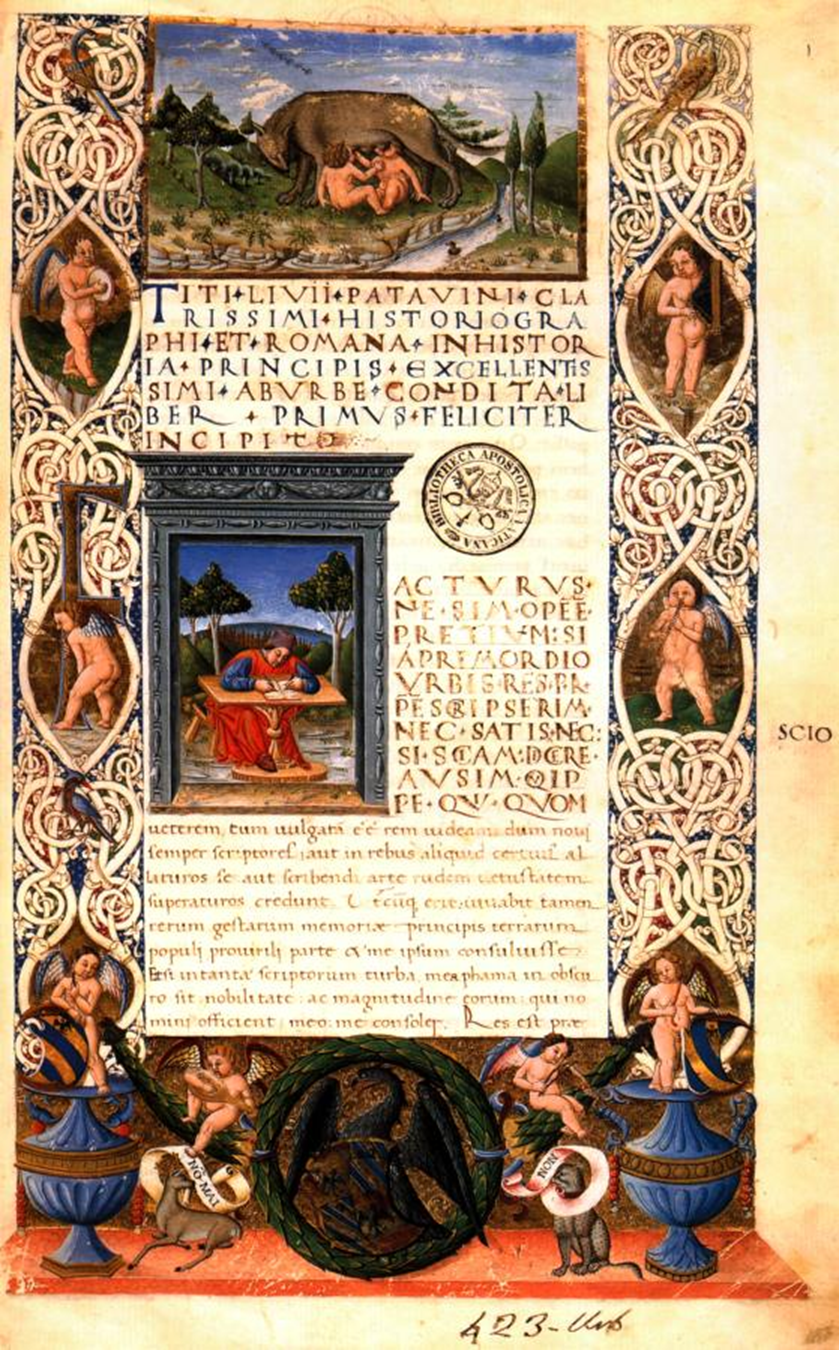 TITI LIVII PATAVINI CLA
RISSIMI HISTORIOGRA
PHI ET ROMANA IN HISTOR
IA PRINCIPIS EXCELLENTIS
SIMI AB VRBE CONDITA LI
BER PRIMVS FELICITER
INCIPIT
BIBLIOTHECA APOSTOLICA VATICANA
F
ACTVRVS
NE SIM OPEE
PRETIVM SI
A PRIMORDIO
VRBIS RES PR
PESCRIPSERIM
NEC SATIS NEC
SI SCIAM DICERE
AVSIM QIP
PE QV QVOM
ueterem, tum uulgatā eē rem uideam: dum noui
semper scriptores, aut in rebus aliquid certius al
laturos se aut scribendi arte rudem uetustatem
superaturos credunt. erit, iuuabit tamen
rerum gestarum memoriæ principis terrarum
populi prouirili parte & me ipsum consuluisse.
Et si in tanta scriptorum turba, mea phama in obscu
ro sit, nobilitate ac magnitudine eorum: qui no
mini officient, meo: me consoler. Res est præ
SCIO
NO MAI
NON
423